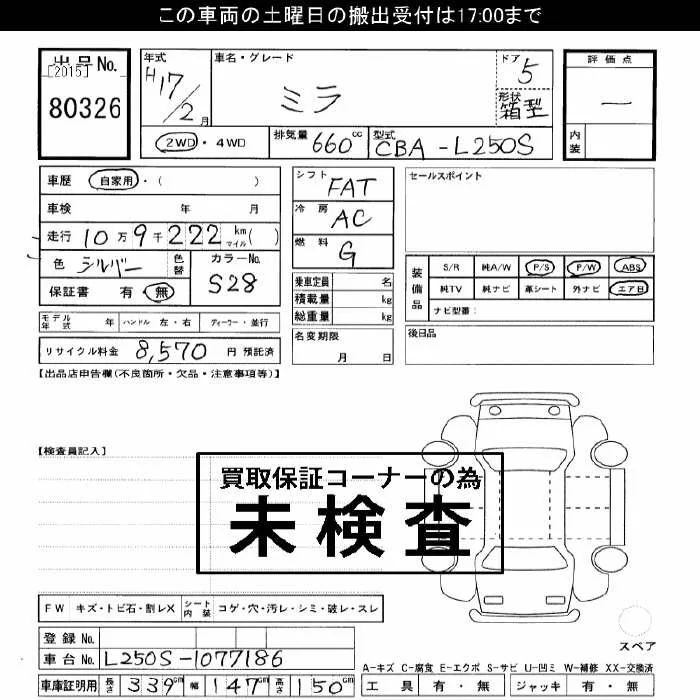 この車両の土曜日の搬出受付は17:00まで
出品No.
[2015]
80326
年式
H17/2月
車名・グレード
ミラ
ドア
5
形状
箱型
評価点
一
内装
2WD・4WD
排気量 660cc
型式 CBA-L250S
車歴 自家用・( )
車検 年 月
走行 10万9千222 km マイル( )
色 シルバー
色替
カラーNo.
S28
保証書 有・無
シフト FAT
冷房 AC
燃料 G
乗車定員 名
積載量 kg
総重量 kg
名変期限
月 日
セールスポイント
装備品
S/R 純A/W P/S P/W ABS
純TV 純ナビ 革シート 外ナビ エアB
ナビ型番:
後日品
モデル年式 年 ハンドル 左・右 ディーラー・並行
リサイクル料金 8,570 円 預託済
【出品店申告欄(不良箇所・欠品・注意事項等)】
【検査員記入】
買取保証コーナーの為
未検査
FW キズ・トビ石・割レX シート内装 コゲ・穴・汚レ・シミ・破レ・スレ
登録No.
車台No. L250S-1077186
車庫証明用 長さ 339cm 幅 147cm 高さ 150cm
スペア
A-キズ C-腐食 E-エクボ S-サビ U-凹ミ W-補修 XX-交換済
工具 有・無 ジャッキ 有・無